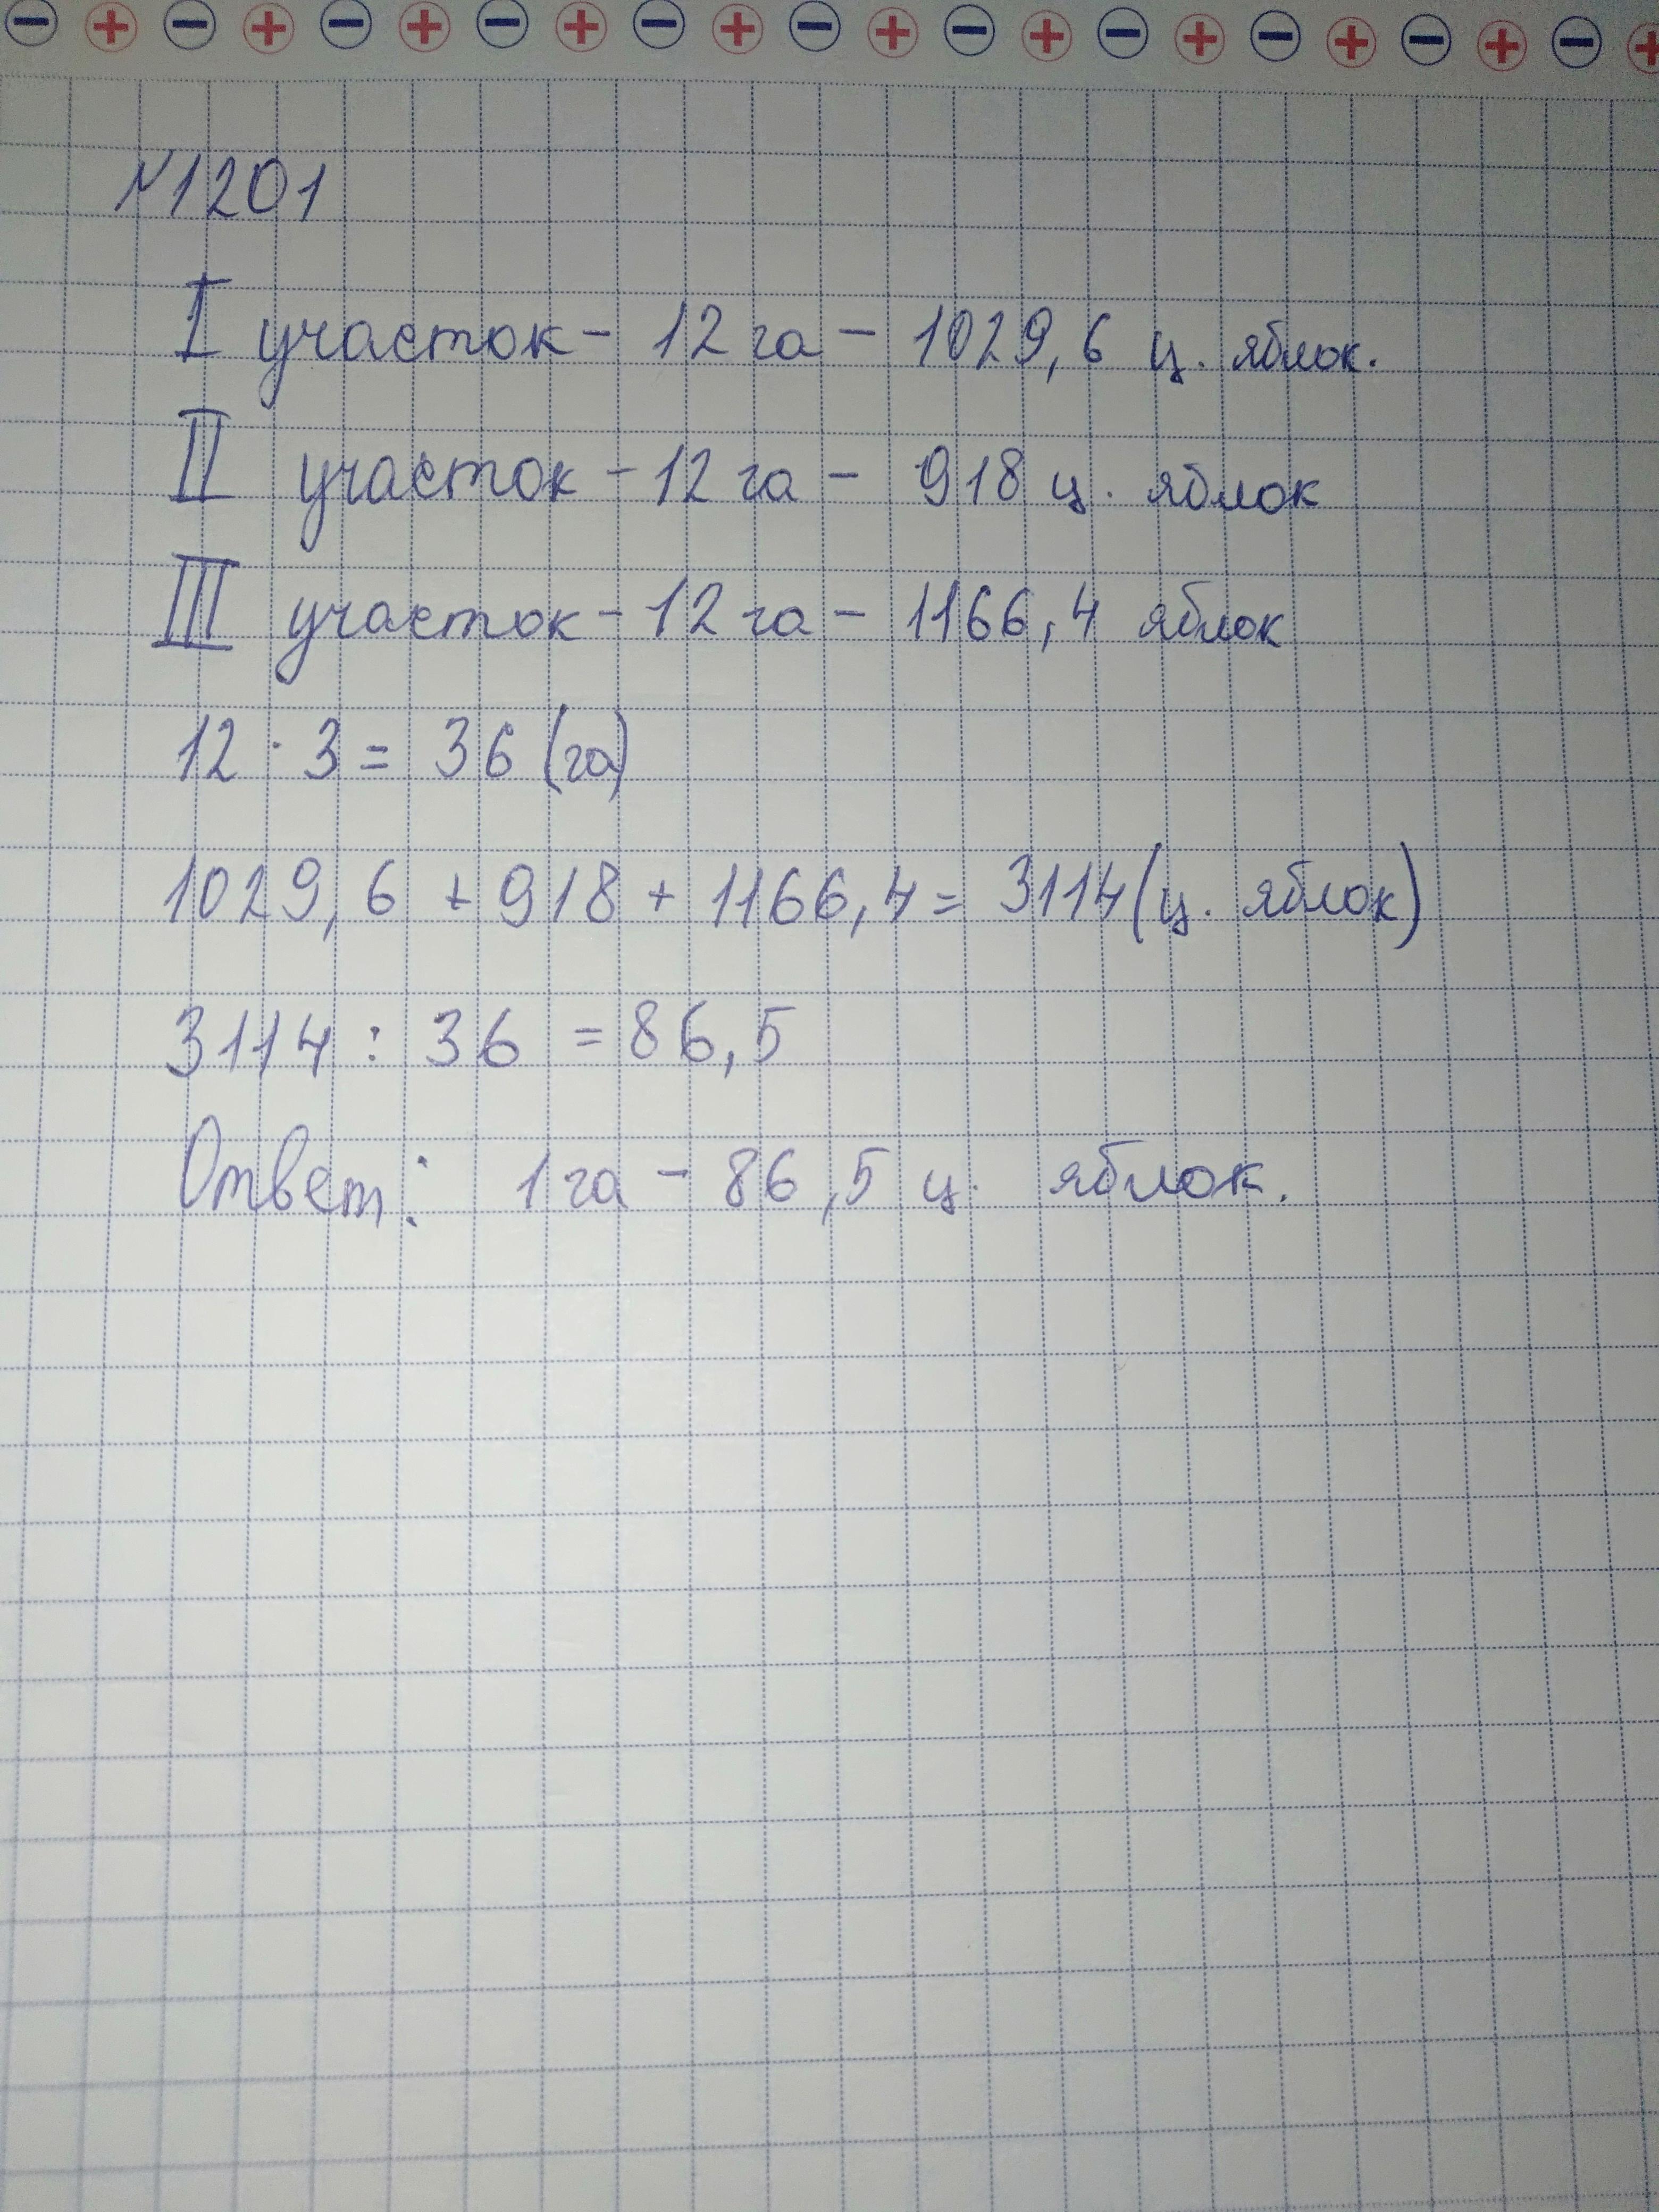 №1201
I участок - 12 га - 1029,6 ц. яблок.
II участок - 12 га - 918 ц. яблок
III участок - 12 га - 1166,4 яблок
12 · 3 = 36 (га)
1029,6 + 918 + 1166,4 = 3114 (ц. яблок)
3114 : 36 = 86,5
Ответ: 1 га - 86,5 ц. яблок.